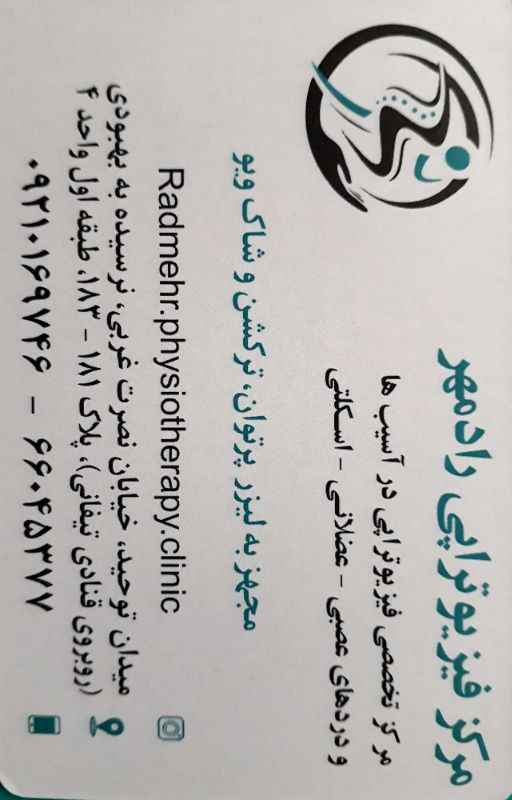 مرکز فیزیوتراپی رادمهر
مرکز تخصصی فیزیوتراپی در آسیب ها
و دردهای عصبی - عضلانی - اسکلتی
مجهز به لیزر پرتوان، ترکشن و شاک ویو
Radmehr.physiotherapy.clinic
میدان توحید، خیابان نصرت غربی، نرسیده به بهبودی
(روبروی قنادی تیفانی)، پلاک ۱۸۱ - ۱۸۳، طبقه اول واحد ۴
۰۹۲۱۰۱۶۹۷۴۶ - ۶۶۰۴۵۳۷۷